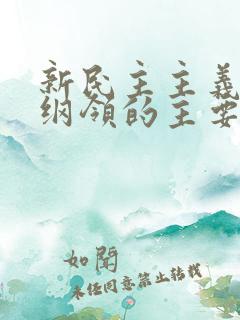 新民主主義
纲领的主要
如聞
未经同意禁止转载